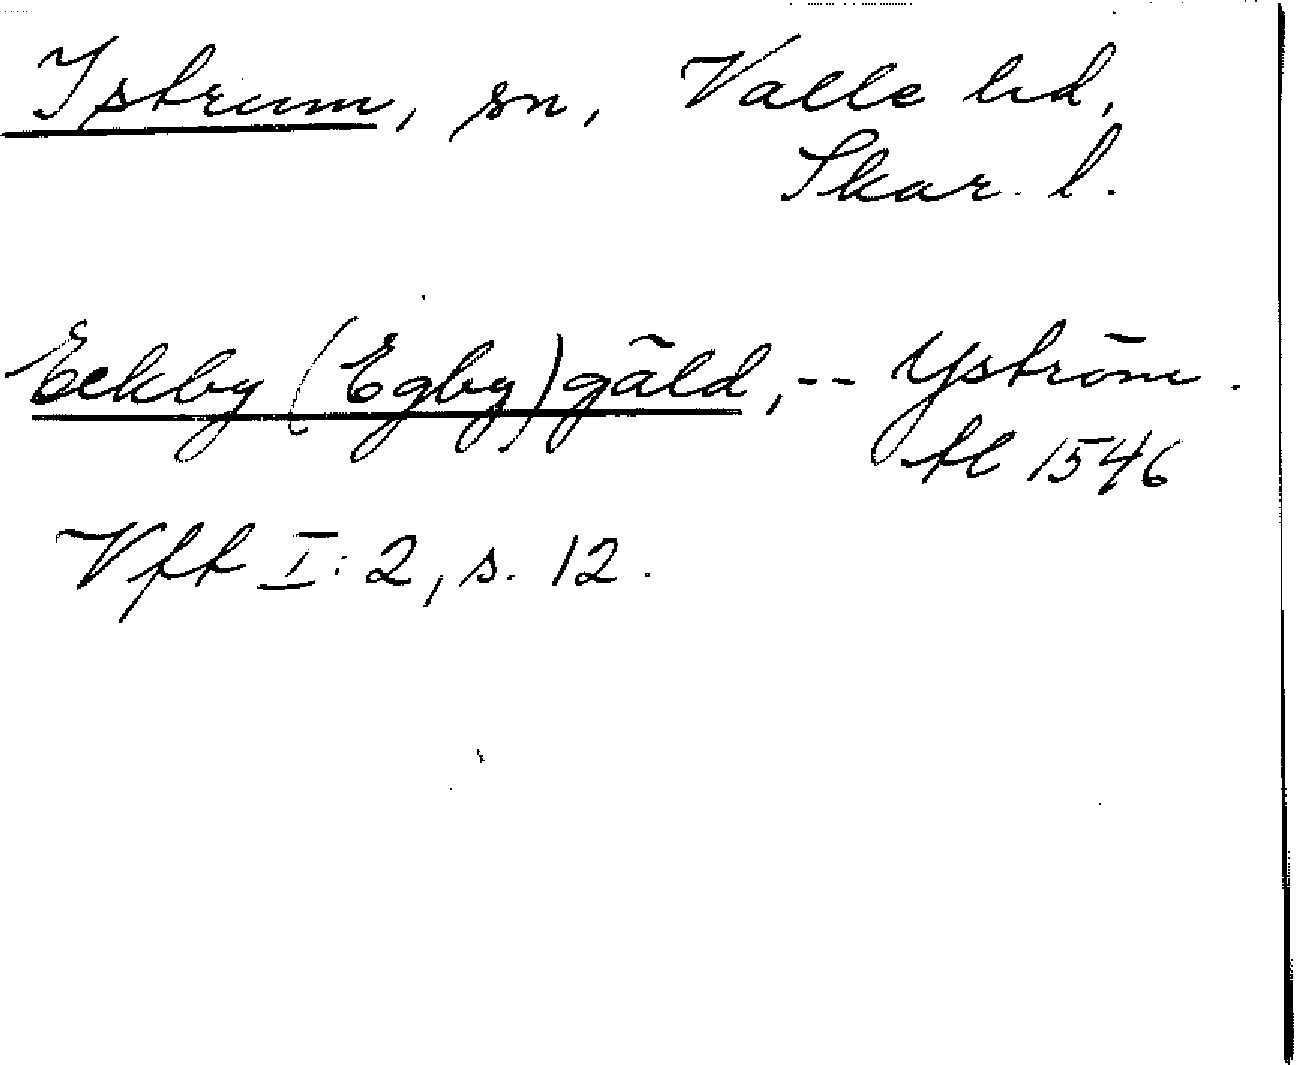 Istrum, sn, Valle hd,
Skar. l.
Eekby (Egby) gäld, -- Yström.
tl 1546
Vfft I: 2, s. 12.